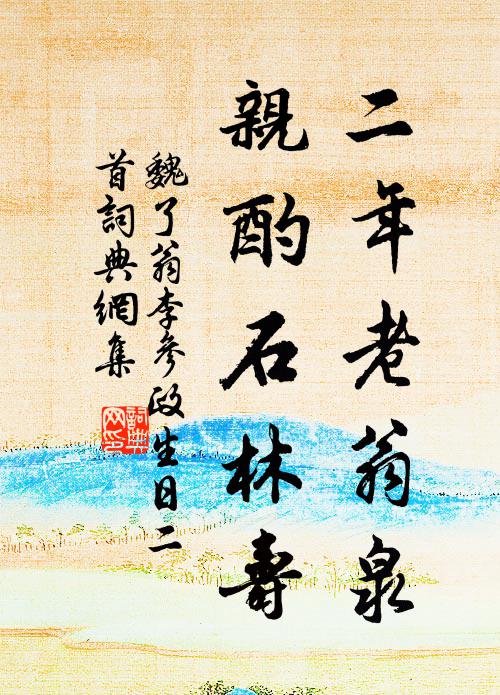 二年老翁泉
親酌石林壽
魏了翁李參政生日二
首詞典網集
詞典
网印